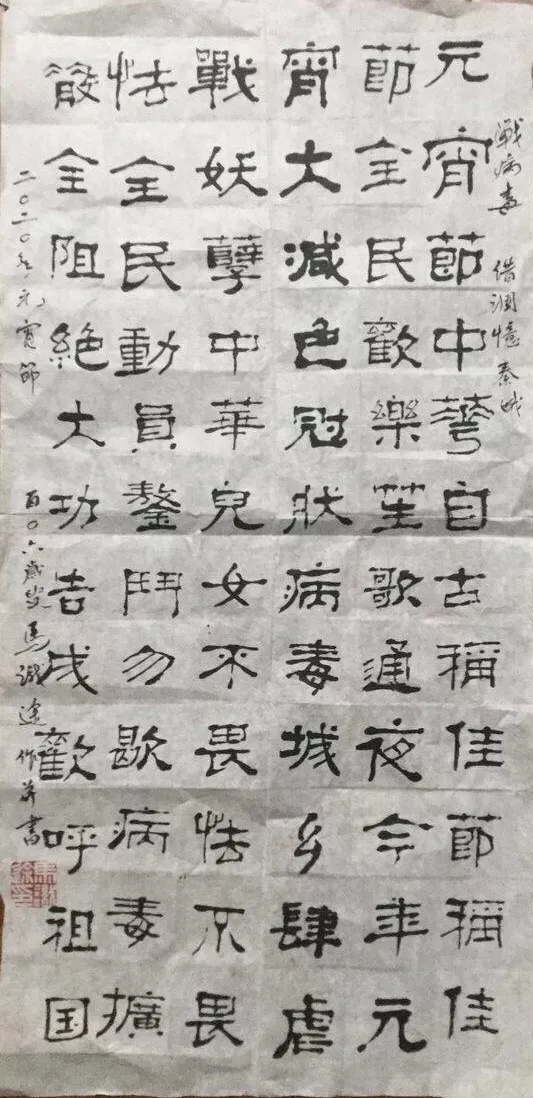 戰病毒 借調憶秦娥
元宵節中華自古稱佳節稱佳
節全民歡樂笙歌通夜今年元
宵大減色冠狀病毒城乡肆虐
戰妖孽中華兒女不畏怯不畏
怯全民動員鏖鬥勿歇病毒擴
散全阻絕大功告成歡呼祖国
二〇二〇年元宵節 百〇六歲叟馬識途作并書